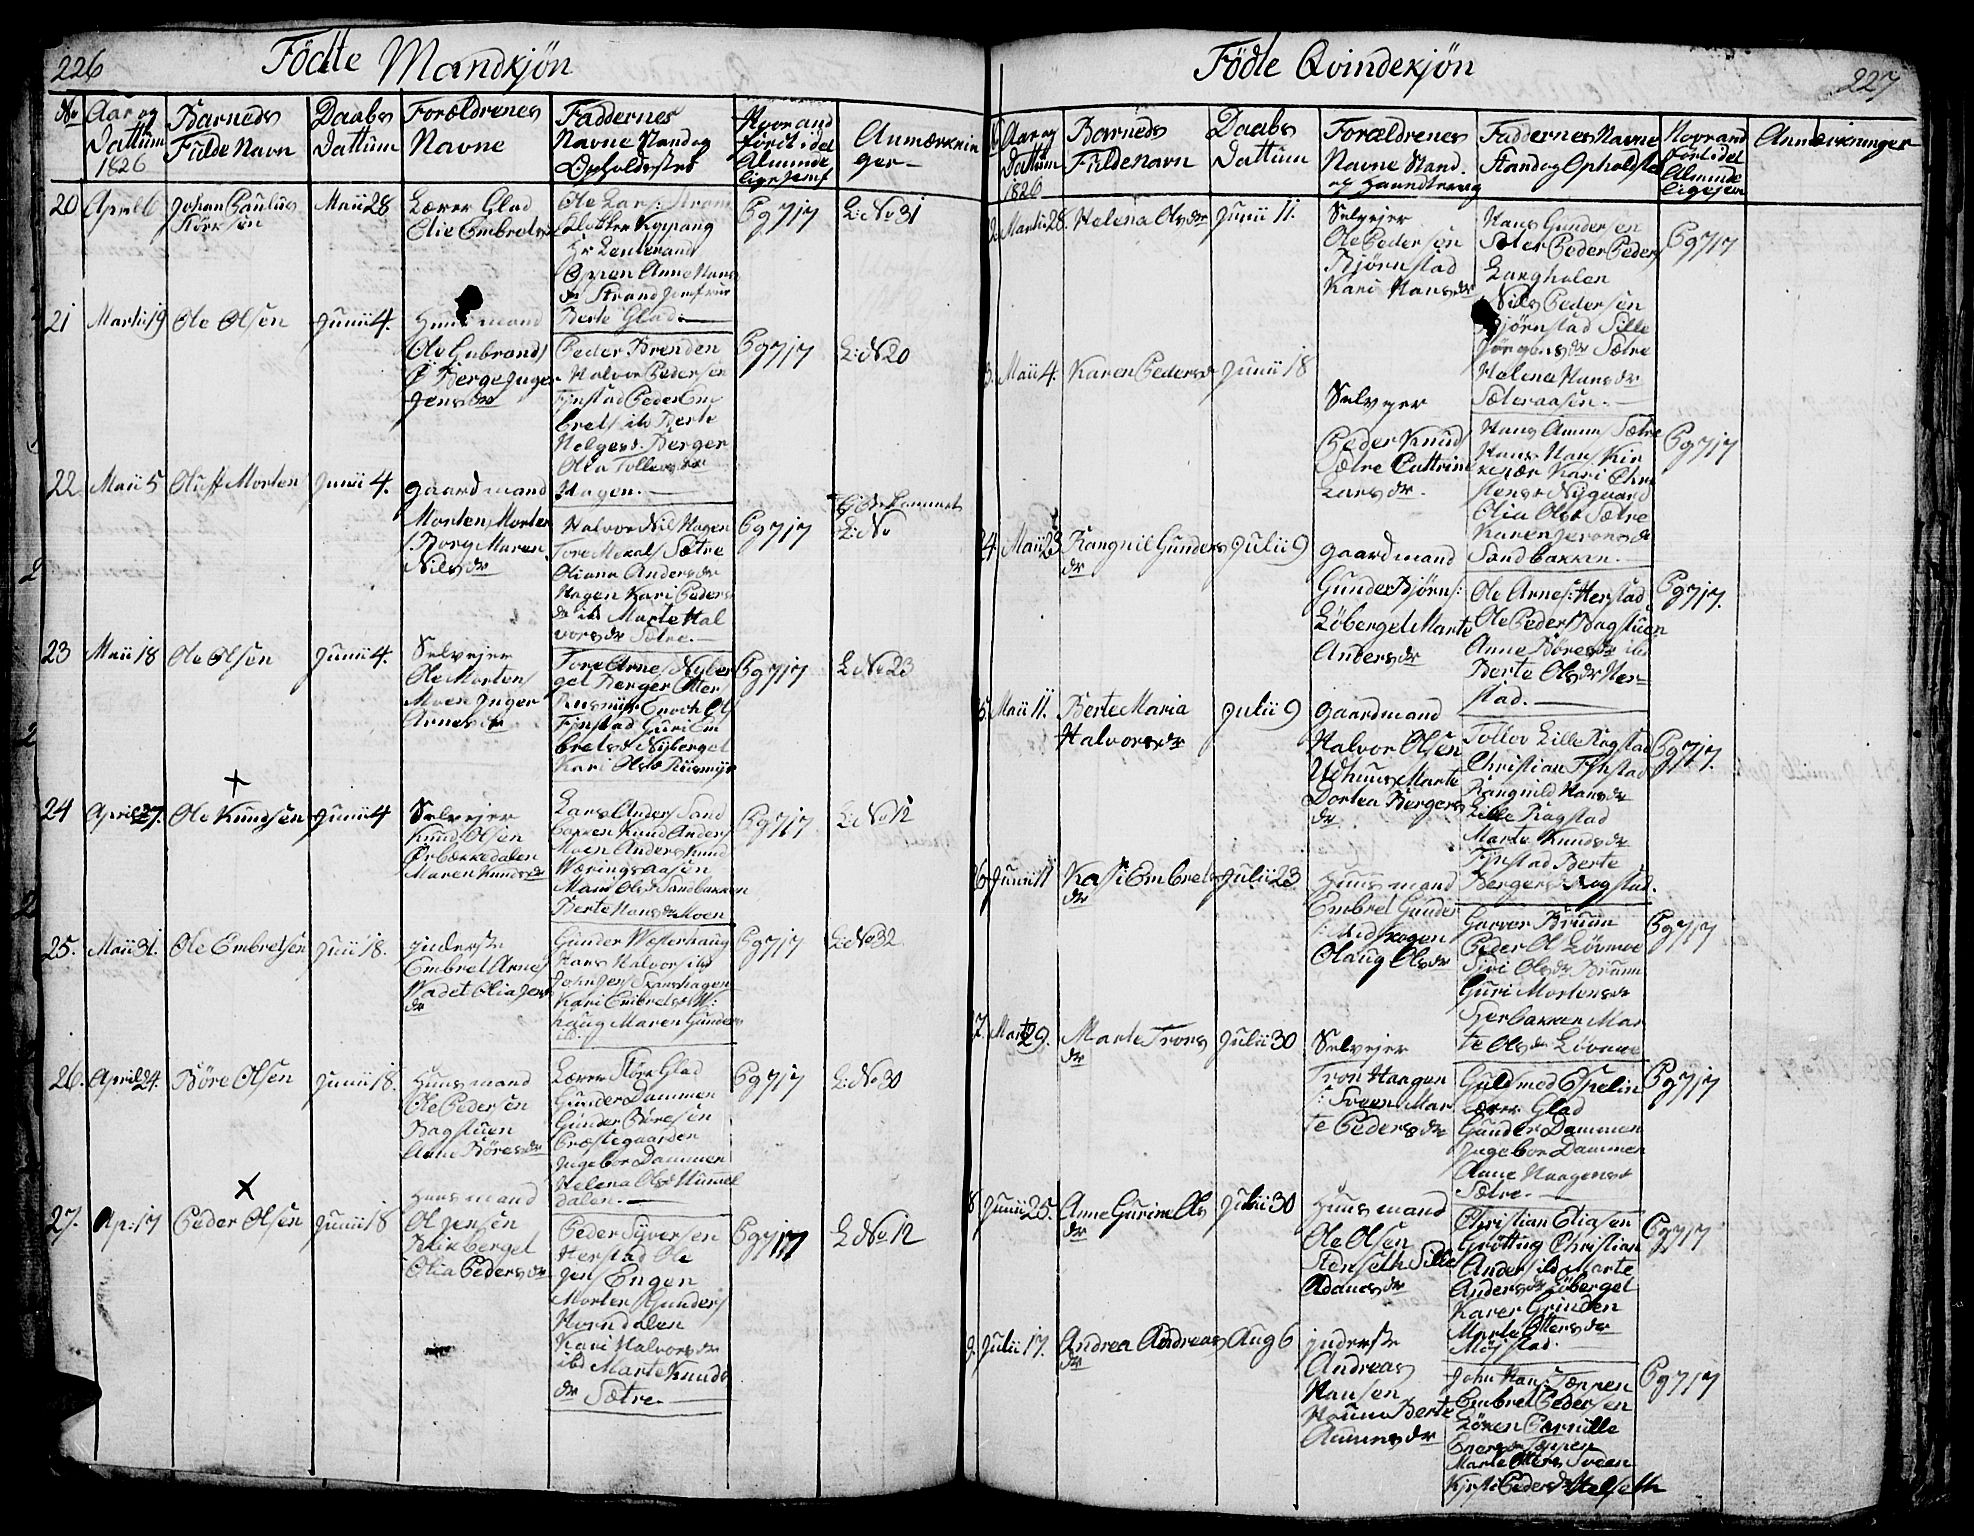 226
Födte Mandkjön
No
Aar og
Dattum
1826
Barneds
Fulde Navn
Daabs
Dattum
Forældrenes
Navne
Faddernes
Navne Stand og
Opholdssted
Hvor and
ført i det
Alminde
lige Jevnf
Anmærknin
ger
20
April 6
Johan Paulus
Störksen
Maii 28
Lærer Glad
Olie Embrets
Ole Lars: Strøm
Klokker Kopang
Hr Leutenand
Oppen Anne Hans
dr Strand Jomfrue
Berte Glad.
Pg 717
L: No 31
21
Martii 19
Ole Olsen
Junii 4.
Huusmand
Ole Gubrands
Berge Inger
Jensdr
Peder Brenden
Halvor Pedersen
Finstad Peder Em
brets ib Berte
Helgesd. Berger
Olia Tollevsdr
Hagen.
Pg 717
L: No 20
22
Maii 5
Oluff Morten
Junii 4.
Gaardmand
Morten Morten
Borg Maren
Nilsdr
Halvor Nils Hagen
Tore Mikals Sætre
Oliana Andersdr
Hagen Kari Peders
dr ib Marte Hal
vorsdr Sætre.
Pg 717
L: No
23
Maii 18
Ole Olsen
Junii 4.
Selvejer
Ole Mortens
Moen Inger
Arnesdr
Tore Arnes Nyber
get Berger Otter
Rusmyr Enoch Ols
Finstad Guri Em
bretsd Nyberget
Kari Olsd Riismyr
Pg 717
L No 23
24
April 27.
Ole Knudsen
Junii 4
Selvejer
Knud Olsen
Ørbækkedalen
Maren Knudsdr
Lars Anders Sand
bakken Knud Anders
Moen Anders Knud
Wæringsaasen
Mari Olsd Sandbakken
Berte Hansdr Moen
Pg 717
L: No 12
25.
Maii 31.
Ole Embretsen
Junii 18.
Inderste
Embret Arnes
Wadet Olia Jens
dr
Gunder Westerhaug
Hans Halvors ib
John Jens Skarshagen
Kari Embretsd W:
haug Maren Gunders
ib.
Pg 717
L: No 32
26.
April 24.
Böre Olsen
Junii 18.
Huusmand
Ole Pedersen
Bagstuen
Anne Böresdr
Lærer Störk Glad
Gunder Dammen
Gunder Böresen
Præstegaarden
Ingebor Dammen
Helena Olsd Himmel
dalen.
Pg 717
L: No 30
27.
Ap: 17
Peder Olsen
Junii 18
Huusmand
Ol Jensen
Blikberget
Olia Pedersdr
Peder Syversen
Herstad Ole
Jens Engen
Morten Gunders
Horndalen
Kari Halvorsdr
ibd Marte Knuds
dr Sætre.
Pg 717
L No. 12
Födte Qvindekjön
227
Aar og
Dattum
1826
Barneds
Fulde Navn
Daabs
Dattum
Forældrenes
Navne Stand.
og Haandtering
Faddernes Navne
Stand og Opholdsted
Hvor and
ført i det
Alminde
lige Jevn
Anmerkninger
2.
Martii 28.
Helena Olsdr
Junii 11.
Selvejer
Ole Pedersen
Bjørnstad
Kari Hansdr
Hans Gundersen
Sæter Peder Peders
Langholen
Nils Pedersen
Bjørnstad Sille
Jörgensdr Sætre
Helena Hansdr
Sæteraasen.
Pg 717
3.
Maii 4.
Karen Pedersd
Junii 18
Selvejer
Peder Knuds
Sætre Cattrine
Larsdr.
Hans Amun Sætre
Hans Hans Kir
kenær Kari Chri
stensd Nygaard
Olia Olsd Sætre
Karen Jeronsd
Sandbakken.
Pg 717
24.
Maii 23
Rangnil Gunders
dr
Julii 9
Gaardmand
Gunder Bjørns:
Löberget Marte
Andersdr
Ole Arnes: Herstad
Ole Peders Bagstuen
Anne Böresdr
Berte Olsdr Her=
stad.
Pg 717.
5
Maii 11.
Berte Maria
Halvorsdr
Julii 9
Gaardmand
Halvor Olsen
Udhuus Marte
Dortea Bergers
dr
Tollov Lille Rogstad
Christian Finstad
Rangnild Hansdr
Lille Rogstad
Marte Knudsdr
Finstad Berte
Bergersd Rogstad.
Pg 717.
6
Junii 11
Kari Embrets
dr
Julii 23
Huusmand
Embret Gunder
Midskogen
Olaug Olsdr
Garver Bruun
Peder Ol Lövmoe
Siri Olsdr Bruun
Guri Mortensdr
Berbakken Mar
te Olsdr Lövmoe
Pg 717
7.
Mart 29.
Marte Trons
dr
Julii 30
Selvejer
Tron Haagen
Sveen Mar
te Pedersdr
Guldsmed Espelin
Lærer Glad
Gunder Dammen
Ingebor Dammen
Anne Haagensd
Sætre.
Pg 717
8
Junii 25.
Anne Gurine Ols
dr
Julii 30
Huusmand
Ole Olsen
Stenseth Sille
Adamsdr
Christian Eliasen
Gröttug Christian
Anders ib Marte
Andersdr Löberget
Karer Grinden
Marte Ottersdr
Møystad.
Pg 717
9.
Julii 17.
Andrea Andreas
dr
Aug 6
Inderste
Andreas
Hansen
Berte
Amunsdr
John Hans: Tøppen
Embret Pedersen
Løken Pernille
Enersdr Tøppen
Marte Ottersd Sveen
Kjersti Pedersdr Stelseth
Pg 717